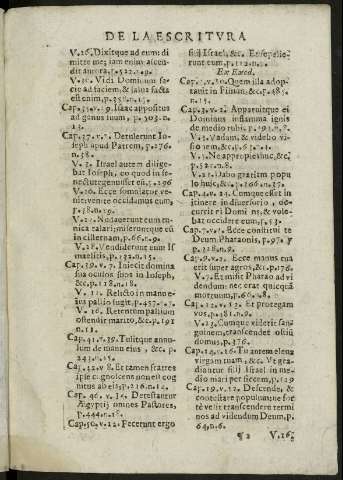 DE LA ESCRITVRA
V.26. Dixitque ad eum: dimitte me; iam enim ascendit aurora, p.522.n.9.
V.30. Vidi Dominum facie ad faciem, & salua facta est anima
Cap. 35. v.29. Isaac appositus ad genus suum, p.303.n.
Cap. 37. v.2. Detulerunt Ioseph apud Patrem, p.276
n.58.
V.3. Israel autem diligebat Ioseph, eo quod in senectute genuisset eũ, p.296
V.20. Ecce somniator venit, venite occidamus eum,
p.58.n.29.
V.23. Nudauerunt eum tunica talari; miseruntque eũ in cisternam, p.66.n.9.
V.28. Vendiderunt eum Ismaelitis, p.132.n.15.
Cap. 39. v.7. Iniecit domina sua oculos suos in Ioseph,
&c. p.118.n.18.
V. 12. Relicto in manu eius pallio fugit, p.457.
V. 16. Retentum pallium ostendit marito, &c. p.191
n.12.
Cap. 41. v.39. Tulitque annulum de manu eius, &c. p.
243.n.15.
Cap. 42. v.8. Et tamen fratres ipse cognoscens non est cognitus ab eis, p.216.n.12.
Cap. 46. v. Detestantur Ægyptij omnes Pastores,
p.444.n.
Cap. 50. v.12. Fecerunt ergo
filij Israel, &c. Et sepelierunt eum, p.112.n.
Ex Exod.
Cap. v.10. Quem illa adoptauit in filium, &c. p.485.
n.15.
Cap. 3. v.2. Apparuitque ei Dominus in flamma ignis de medio rubi, p.191.n.8.
V.3. Vadam, & videbo visionem, &c. p.63.n.1.
V.5. Ne appropies huc, &c.
p.521.n.8.
V.21. Dabo gratiam populo huic, &c. p.106.n.37.
Cap. 4. v.24. Cumque esset in itinere in diuersorio, occurrit ei Dominus, & volebat occidere eum, p.53.
Cap. 7. v.1. Ecce constitui te Deum Pharaonis, p.97. y
p.328.n.9.
Cap. 9. v.3. Ecce manus tua erit super agros, &c. p.176.
V.7. Et misit Pharao ad videndum: nec erat quicquã mortuum, p.66.n.8.
Cap. 12. v.13. Et protegam vos, p.381.n.9.
V.23. Cumque viderit sanguinem, transcendet ostiũ domus, p.376.
Cap. 14. v.16. Tu autem eleua virgam tuam, &c. Vt gradiantur filij Israel in medio mari per siccum, p.129
Cap. 19. v.21. Descende, & contestare populum: ne forte velit transcendere terminos ad videndum Deum, p.
64.n.6.
¶ 2 V.16